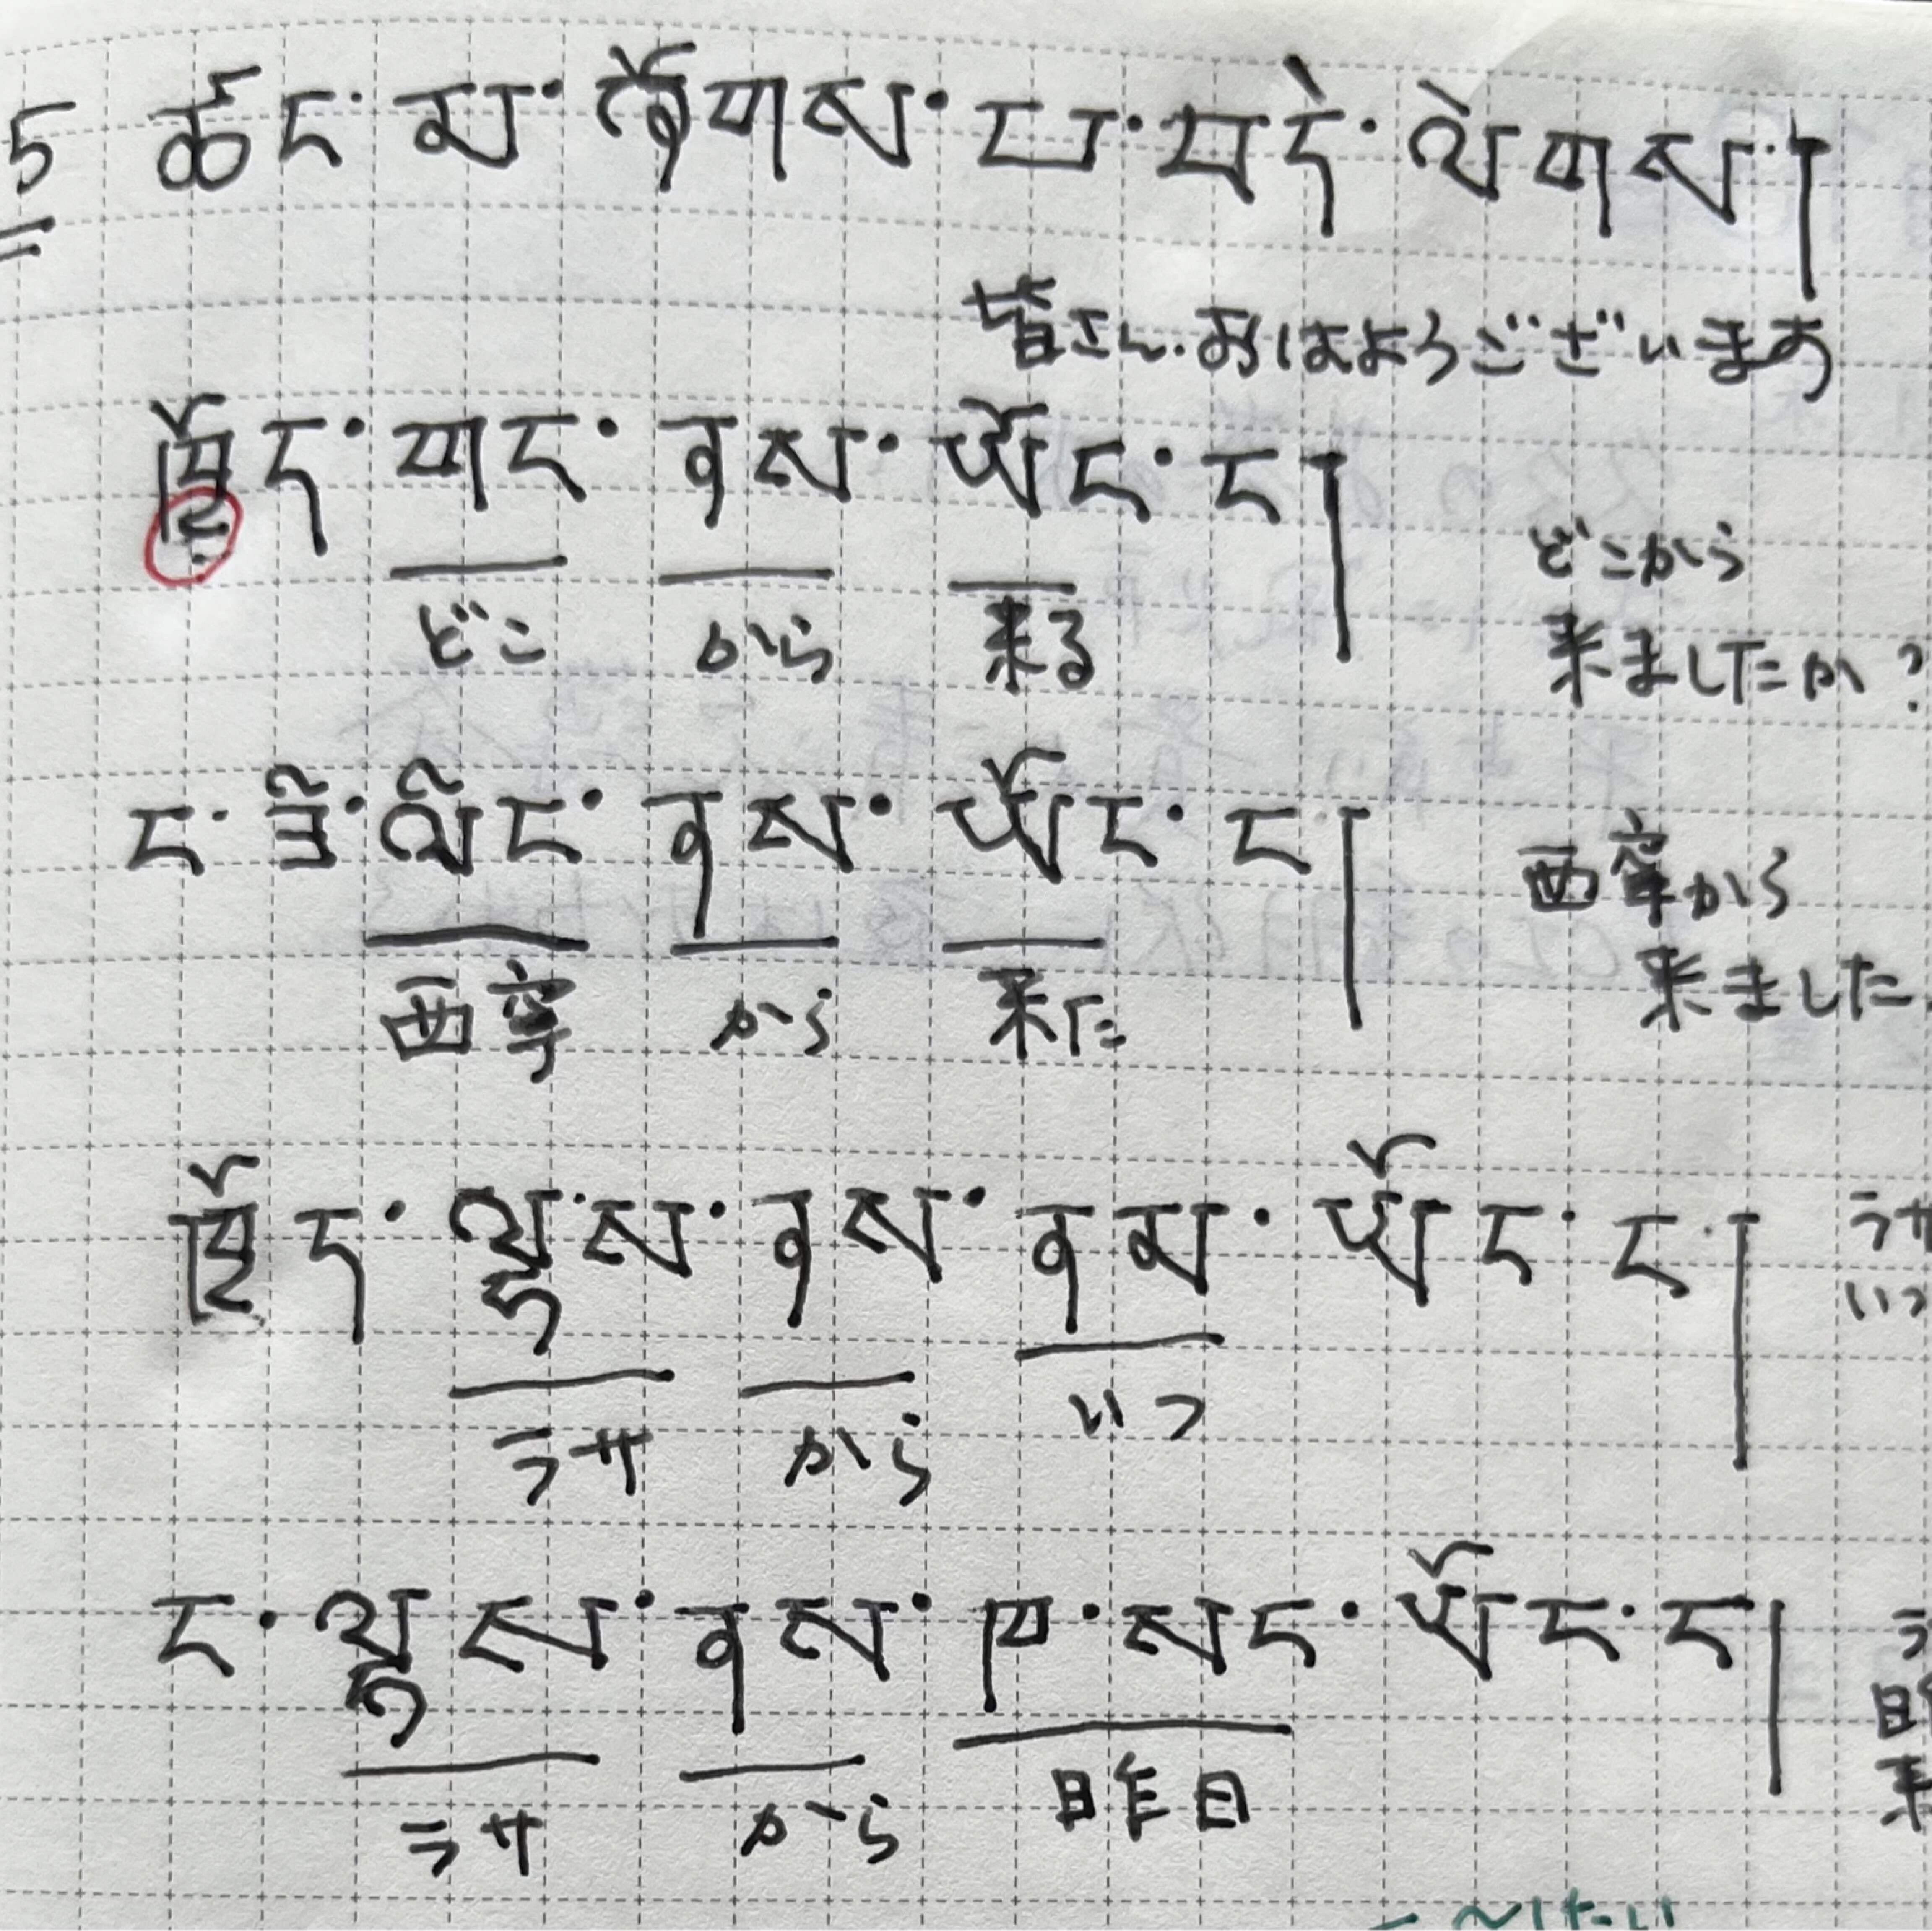 5 ཚང་མ་ཞོགས་པ་བདེ་ལེགས།
皆さん.おはようございます
ཁྱོད་གང་ནས་ཡོང་ང།
どこ から 来る
どこから
来ましたか?
ང་ཟི་ལིང་ནས་ཡོང་ང།
西寧 から 来た
西寧から
来ました
ཁྱོད་ལྷ་ས་ནས་ནམ་ཡོང་ང།
ラサ から いつ
ラサ
いつ
ང་ལྷས་ནས་ཁ་སང་ཡོང་ང།
ラサ から 昨日